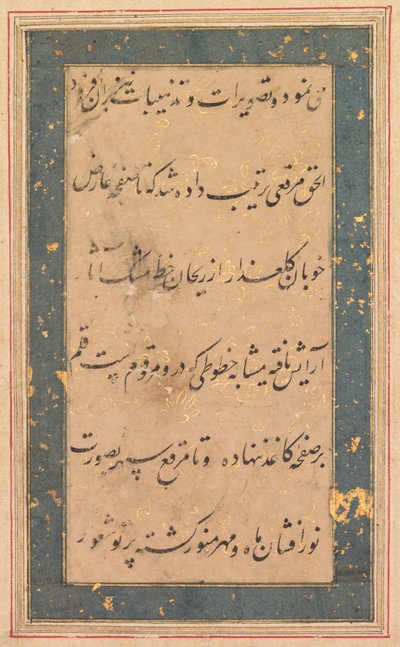 من نمود و تصویرات و تذهیبات نیز بران فزود
الحق مرقعی ترتیب داده شد که تا صفحهٔ عارض
خوبان گلعذار از ریحان خط مشک
آرایش یافته مشابه خطوطی که درو مرقوم است قلم
بر صفحهٔ کاغذ ننهاده و تا مرقع سپهر بصورت
نور افشان ماه و مهر منور گشته پرتو شعور